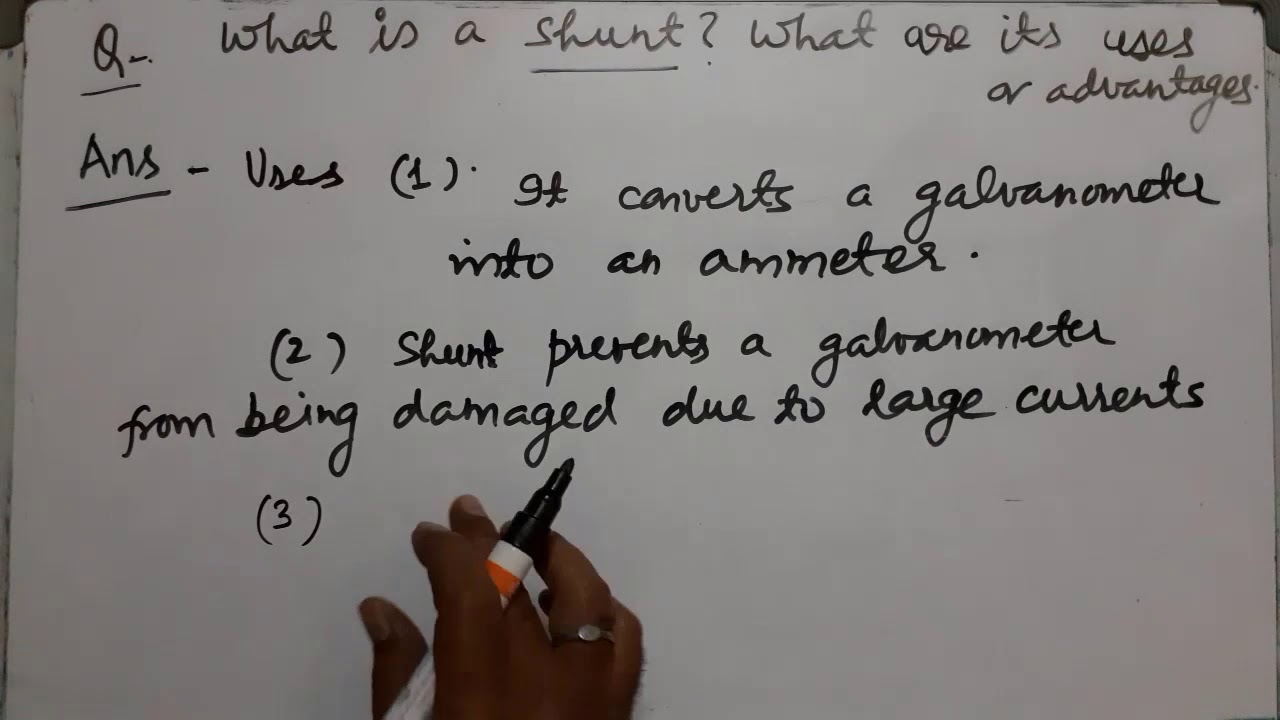 Q-. What is a shunt? What are its uses
or advantages.
Ans - Uses (1). It converts a galvanometer
into an ammeter.
(2) Shunt prevents a galvanometer
from being damaged due to large currents
(3)